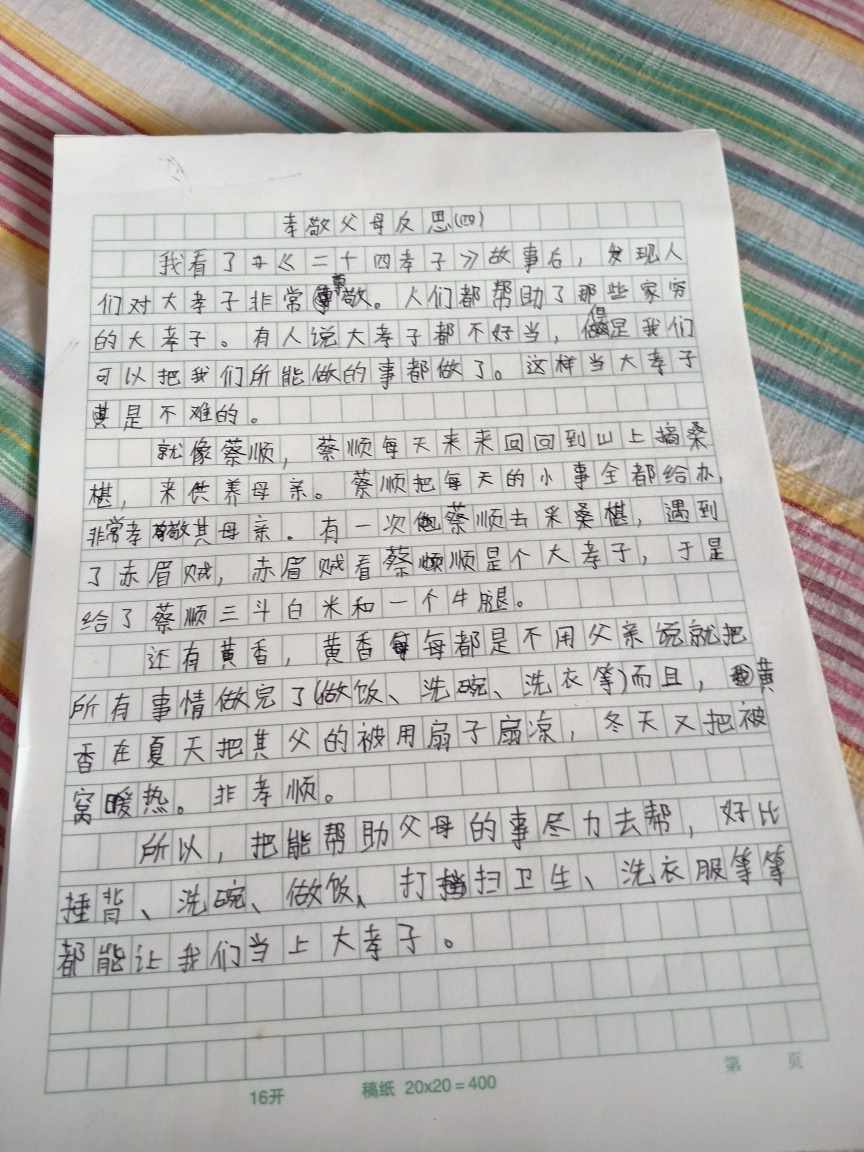 孝敬父母反思(四)
我看了《二十四孝子》故事后，发现人
们对大孝子非常尊敬。人们都帮助了那些家穷
的大孝子。有人说大孝子都不好当，但是我们
可以把我们所能做的事都做了。这样当大孝子
其是不难的。
就像蔡顺，蔡顺每天来来回回到山上摘桑
椹，来供养母亲。蔡顺把每天的小事全都给办，
非常孝敬其母亲。有一次蔡顺去采桑椹，遇到
了赤眉贼，赤眉贼看蔡顺是个大孝子，于是
给了蔡顺三斗白米和一个牛腿。
还有黄香，黄香每都是不用父亲说就把
所有事情做完了(做饭、洗碗、洗衣等)而且，黄
香在夏天把其父的被用扇子扇凉，冬天又把被
窝暖热。非孝顺。
所以，把能帮助父母的事尽力去帮，好比
捶背、洗碗、做饭、打扫卫生、洗衣服等等
都能让我们当上大孝子。
16开
稿纸 20×20=400
第 页